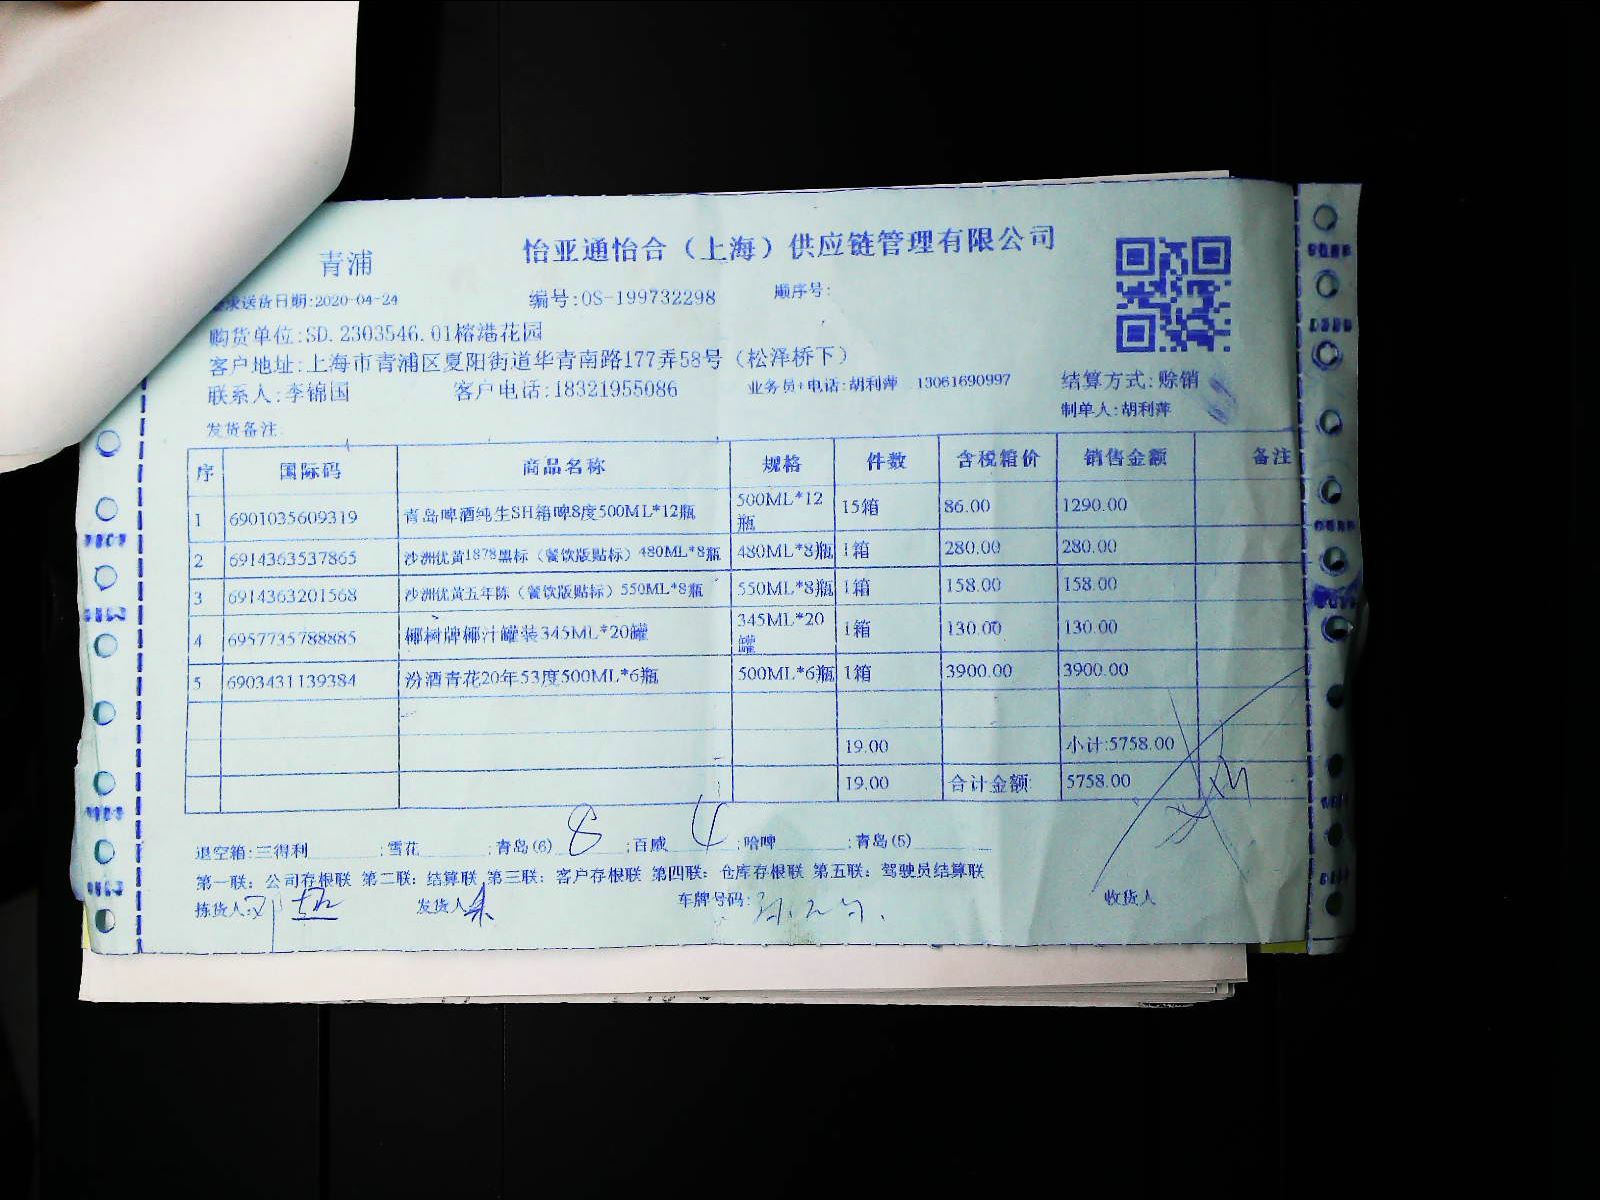 青浦
怡亚通怡合（上海）供应链管理有限公司
求送货日期:2020-04-24 编号:OS-199732298 顺序号:
购货单位:SD.2303546.01榕港花园
客户地址:上海市青浦区夏阳街道华青南路177弄58号（松泽桥下）
联系人:李锦国 客户电话:18321955086 业务员+电话:胡利萍 13061690997 结算方式:赊销
制单人:胡利萍
发货备注:
序 国际码 商品名称 规格 件数 含税箱价 销售金额 备注
1 6901035609319 青岛啤酒纯生SH箱啤8度500ML*12瓶 500ML*12瓶 15箱 86.00 1290.00
2 6914363537865 沙洲优黄1878黑标（餐饮版贴标）480ML*8瓶 480ML*8瓶 1箱 280.00 280.00
3 6914363201568 沙洲优黄五年陈（餐饮版贴标）550ML*8瓶 550ML*8瓶 1箱 158.00 158.00
4 6957735788885 椰树牌椰汁罐装345ML*20罐 345ML*20罐 1箱 130.00 130.00
5 6903431139384 汾酒青花20年53度500ML*6瓶 500ML*6瓶 1箱 3900.00 3900.00
19.00 小计:5758.00
19.00 合计金额: 5758.00
退空箱:三得利 ;雪花 ;青岛(6) 8 ;百威 4 ;哈啤 ;青岛(5)
第一联：公司存根联 第二联：结算联 第三联：客户存根联 第四联：仓库存根联 第五联：驾驶员结算联
拣货人: 发货人 车牌号码: 收货人